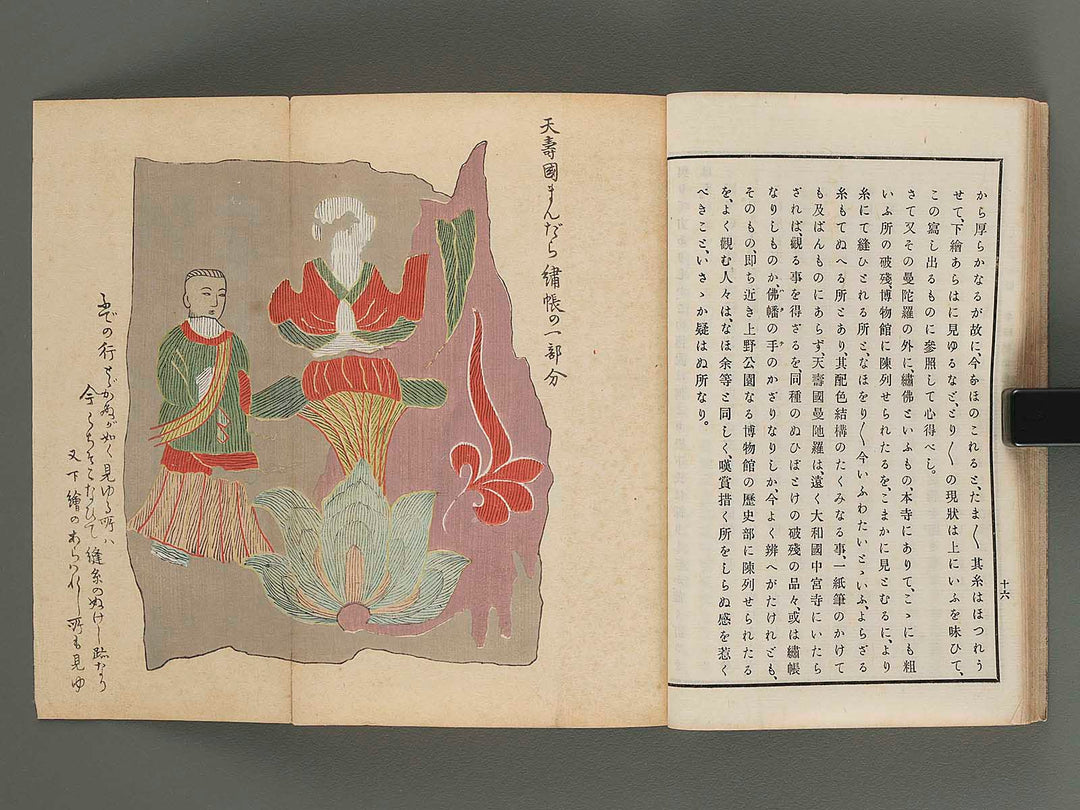 から厚らかなるが故に、今なほのこれると、たま〱其糸はほつれう
せて、下繪あらはに見ゆるなど、とり〲の現狀は上にいふを味ひて、
この寫し出るものに參照して心得べし。
さて又その曼陀羅の外に、繡佛といふもの、本寺にありて、こゝにも粗
いふ所の破殘、博物館に陳列せられたるを、こまかに見とむるに、より
糸にて縫ひとれる所と、なほをり〱今いふわたいとゝいふ、よらざる
糸もてぬへる所とあり、其配色結構のたくみなる事、一紙筆のかけて
も及ばんものにあらず、天壽國曼陁羅は、遠く大和國中宮寺にいたら
ざれば、觀る事を得ざるを、同種のぬひぼとけの破殘の品々、或は繡帳
なりしものか、佛幡の手のかざりなりしか今よく辨へがたけれども、
そのもの、即ち近き上野公園なる博物館の歷史部に陳列せられたる
を、よく觀む人々は、なほ余等と同しく、嘆賞措く所をしらぬ感を惹く
べきこと、いさゝか疑はぬ所なり。
十六
天壽國まんだら繡帳の一部分
ふでの行すぢかぬが如く見ゆる所ハ
縫糸のぬけし跡なり
又下繪のあらハれし所も見ゆ